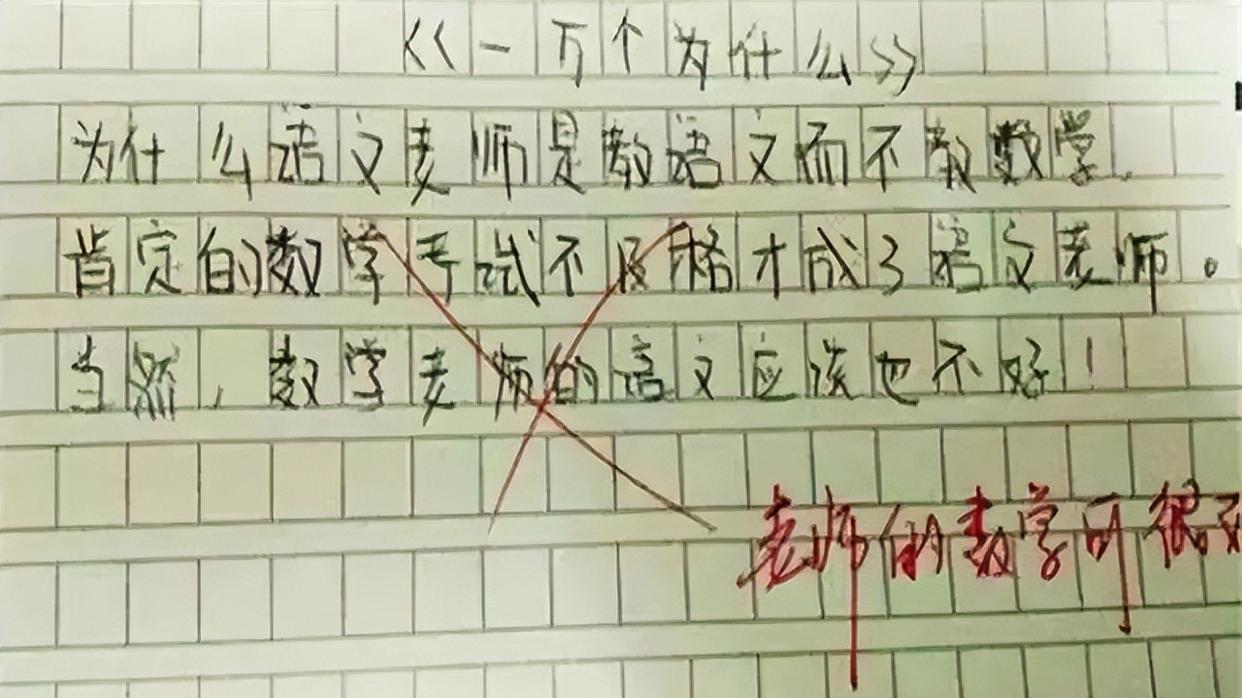 《一万个为什么》
为什么语文老师是教语文而不教数学。
肯定的数学考试不及格才成了语文老师。
当然，数学老师的语文应该也不好！
老师的数学可很